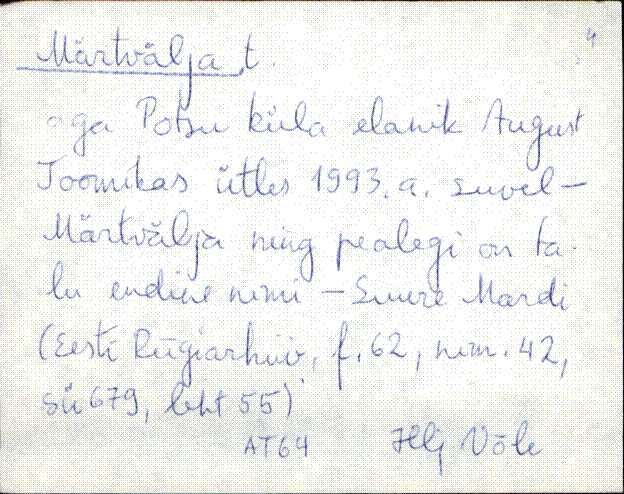 4
Märtvälja t.
aga Potsu küla elanik August
Toomikas ütles 1993. a. suvel –
Märtvälja ning pealegi on ta-
lu endine nimi – Suure Mardi
(Eesti Riigiarhiiv, f. 62, nim. 42,
sü 679, leht 55)
AT64 Hlj Võle